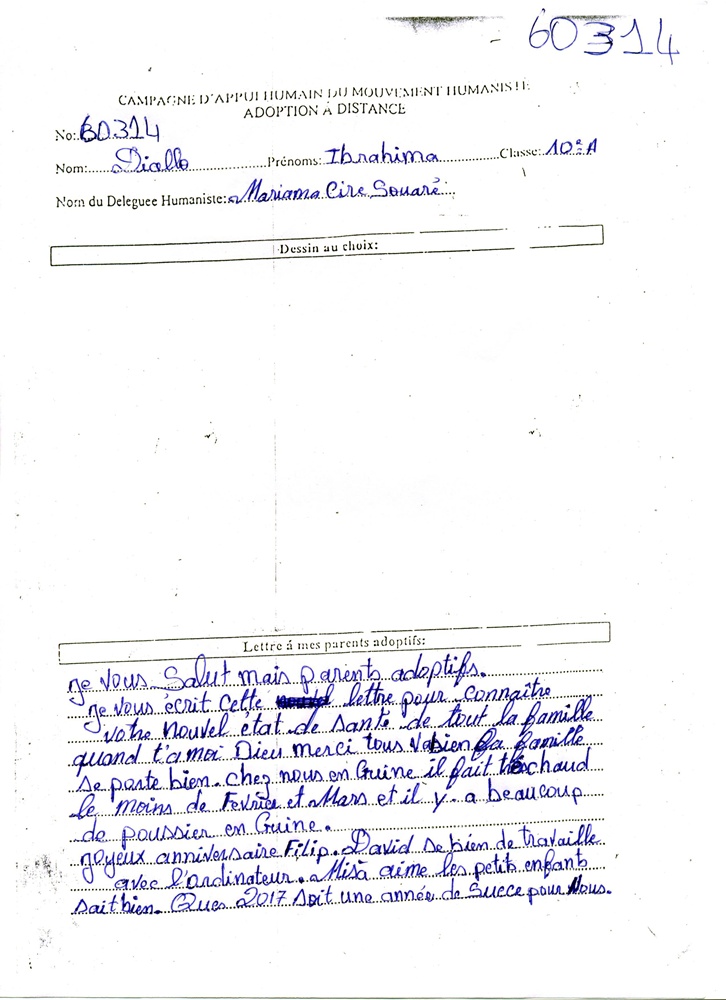 60314
CAMPAGNE D'APPUI HUMAIN DU MOUVEMENT HUMANISTE
ADOPTION À DISTANCE
No: 60314
Nom: Diallo Prénoms: Ibrahima Classe: 10e A
Nom du Deleguee Humaniste: Mariama Cire Souaré
Dessin au choix:
Lettre á mes parents adoptifs:
Je vous Salut mais parents adoptifs.
Je vous écrit cette lettre pour connaître
votre nouvel état de santé de tout la famille
quand t'a moi Dieu merci tous va bien la famille
se porte bien. chez nous en Guine il fait très chaud
le moins de Fevrier et Mars et il y a beaucoup
de poussier en Guine.
joyeux anniversaire Filip. David se bien de travaille
avec l'ordinateur. Misà aime les petits enfants
sait bien. Ques 2017 soit une année de Succe pour Nous.